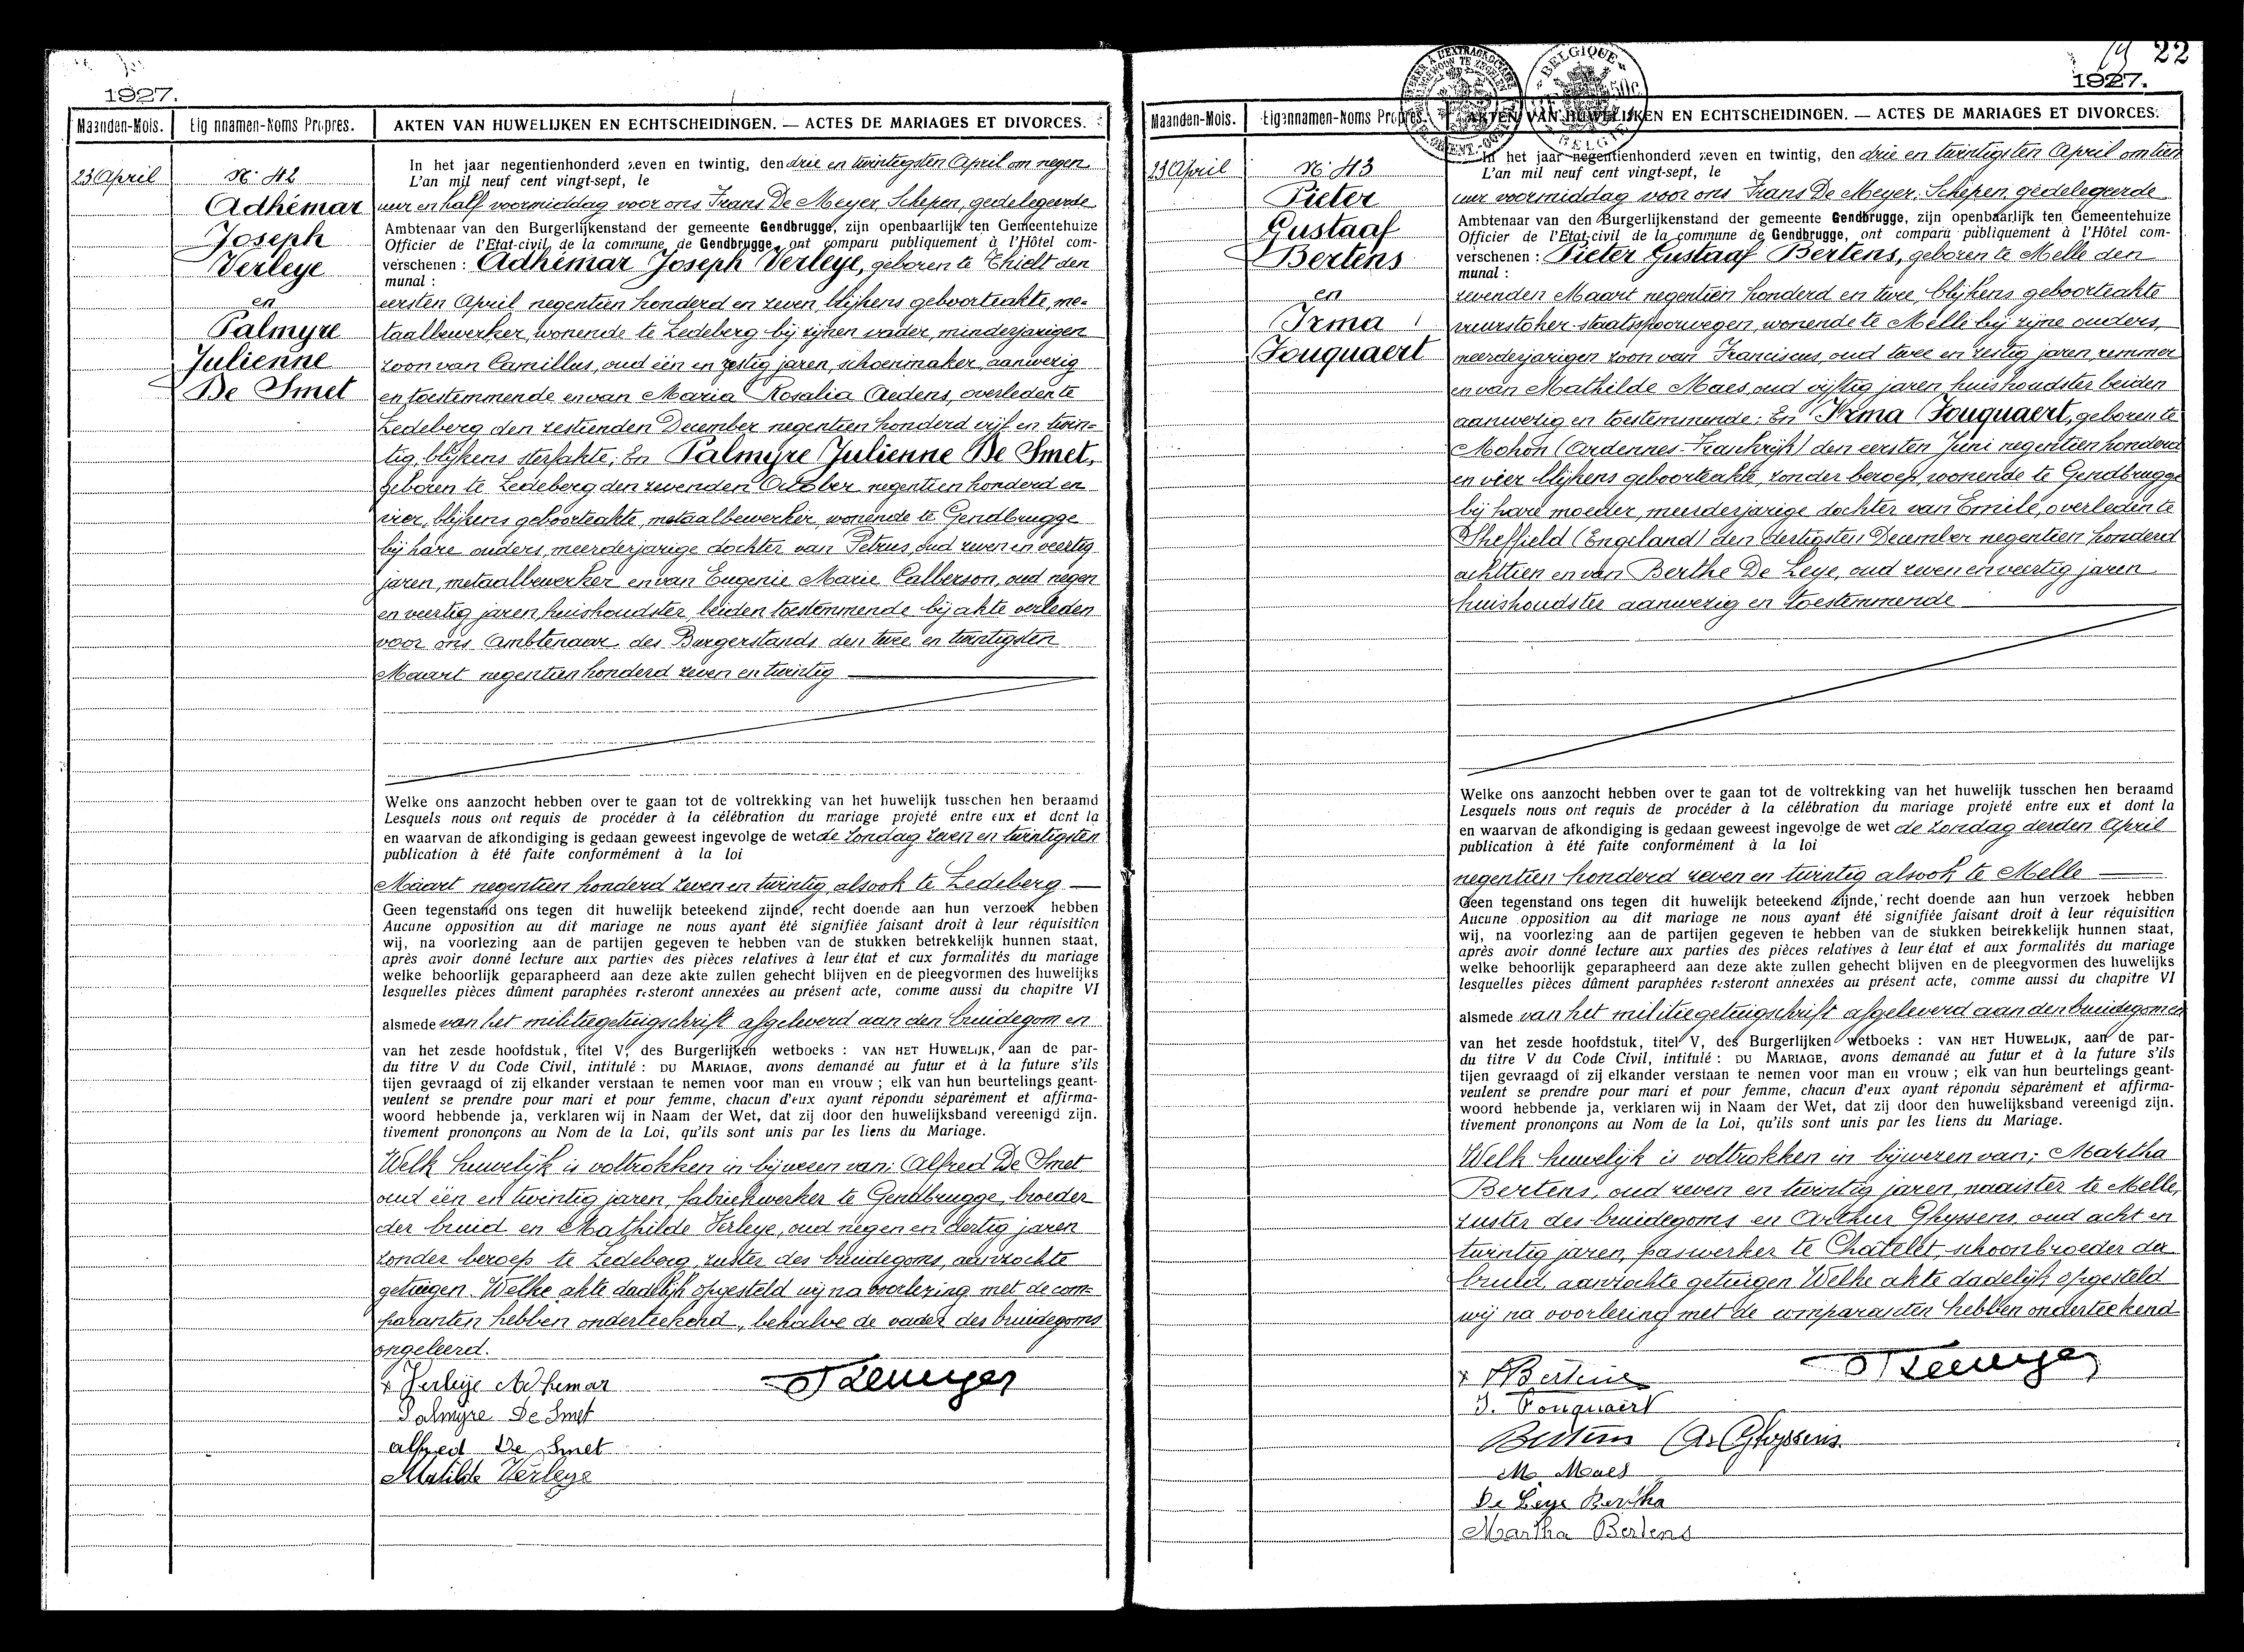 1927.
Maanden-Mois.
Eig nnamen-Noms Propres.
AKTEN VAN HUWELIJKEN EN ECHTSCHEIDINGEN. — ACTES DE MARIAGES ET DIVORCES.
23 April
N. 42
Adhémar
Joseph
Verleye
en
Palmyre
Julienne
De Smet
In het jaar negentienhonderd zeven en twintig, den drie en twintigsten April om negen
L'an mil neuf cent vingt-sept, le
uur en half voormiddag voor ons Frans De Meyer, Schepen, gedelegeerde
Ambtenaar van den Burgerlijkenstand der gemeente Gendbrugge, zijn openbaarlijk ten Gemeentehuize
Officier de l'Etat-civil de la commune de Gendbrugge, ont comparu publiquement à l'Hôtel com-
verschenen : Adhémar Joseph Verleye, geboren te Thielt den
munal :
eersten April negentien honderd en zeven, blijkens geboorteakte, me-
taalbewerker, wonende te Ledeberg bij zijnen vader, minderjarigen
zoon van Camillus, oud één en zestig jaren, schoenmaker, aanwezig
en toestemmende en van Maria Rosalia Aedens, overleden te
Ledeberg den zestienden December negentien honderd vijf en twin-
tig, blijkens sterfakte; En Palmyre Julienne De Smet,
geboren te Ledeberg den zevenden October negentien honderd en
vier, blijkens geboorteakte, metaalbewerker, wonende te Gendbrugge
bij hare ouders, meerderjarige dochter van Petrus, oud zeven en veertig
jaren, metaalbewerker en van Eugenie Marie Calberson, oud negen
en veertig jaren, huishoudster, beiden toestemmende bij akte verleden
voor ons Ambtenaar des Burgerstands den twee en twintigsten
Maart negentien honderd zeven en twintig
Welke ons aanzocht hebben over te gaan tot de voltrekking van het huwelijk tusschen hen beraamd
Lesquels nous ont requis de procéder à la célébration du mariage projeté entre eux et dont la
en waarvan de afkondiging is gedaan geweest ingevolge de wet de zondag zeven en twintigsten
publication à été faite conformément à la loi
Maart negentien honderd zeven en twintig, alsook te Ledeberg
Geen tegenstand ons tegen dit huwelijk beteekend zijnde, recht doende aan hun verzoek hebben
Aucune opposition au dit mariage ne nous ayant été signifiée faisant droit à leur réquisition
wij, na voorlezing aan de partijen gegeven te hebben van de stukken betrekkelijk hunnen staat,
après avoir donné lecture aux parties des pièces relatives à leur état et aux formalités du mariage
welke behoorlijk geparapheerd aan deze akte zullen gehecht blijven en de pleegvormen des huwelijks
lesquelles pièces dûment paraphées resteront annexées au présent acte, comme aussi du chapitre VI
alsmede van het militiegetuigschrift afgeleverd aan den bruidegom en
van het zesde hoofdstuk, titel V, des Burgerlijken wetboeks : VAN HET HUWELIJK, aan de par-
du titre V du Code Civil, intitulé : DU MARIAGE, avons demandé au futur et à la future s'ils
tijen gevraagd of zij elkander verstaan te nemen voor man en vrouw ; elk van hun beurtelings geant-
veulent se prendre pour mari et pour femme, chacun d'eux ayant répondu séparément et affirma-
woord hebbende ja, verklaren wij in Naam der Wet, dat zij door den huwelijksband vereenigd zijn.
tivement prononçons au Nom de la Loi, qu'ils sont unis par les liens du Mariage.
Welk huwelijk is voltrokken in bijwezen van: Alfred De Smet
oud één en twintig jaren, fabriekwerker te Gendbrugge, broeder
der bruid en Mathilde Verleye, oud negen en dertig jaren
zonder beroep te Ledeberg, zuster des bruidegoms, aanzochte
getuigen. Welke akte dadelijk opgesteld wij na voorlezing met de com-
paranten hebben onderteekend, behalve de vader des bruidegoms
ongeleerd.
x Verleye Adhemar
Palmyre De Smet
alfred De Smet
Matilde Verleye
22
1927.
Maanden-Mois.
Eigennamen-Noms Propres.
AKTEN VAN HUWELIJKEN EN ECHTSCHEIDINGEN. — ACTES DE MARIAGES ET DIVORCES.
BELGIQUE
BELGIE
23 April
N. 43
Pieter
Gustaaf
Bertens
en
Irma
Fouquaert
In het jaar negentienhonderd zeven en twintig, den drie en twintigsten April om tien
L'an mil neuf cent vingt-sept, le
uur voormiddag voor ons Frans De Meyer, Schepen, gedelegeerde
Ambtenaar van den Burgerlijkenstand der gemeente Gendbrugge, zijn openbaarlijk ten Gemeentehuize
Officier de l'Etat-civil de la commune de Gendbrugge, ont comparu publiquement à l'Hôtel com-
verschenen : Pieter Gustaaf Bertens, geboren te Melle den
munal :
zevenden Maart negentien honderd en twee, blijkens geboorteakte
vuurstoker-staatsspoorwegen, wonende te Melle bij zijne ouders,
meerderjarigen zoon van Franciscus, oud twee en zestig jaren, remmer
en van Mathilde Maes, oud vijftig jaren, huishoudster beiden
aanwezig en toestemmende; En Irma Fouquaert, geboren te
Mohon (Ardennes-Frankrijk) den eersten Juni negentien honderd
en vier blijkens geboorteakte, zonder beroep, wonende te Gendbrugge
bij hare moeder, meerderjarige dochter van Emile, overleden te
Sheffield (Engeland) den dertigsten December negentien honderd
achttien en van Berthe De Leye, oud zeven en veertig jaren
huishoudster aanwezig en toestemmende
Welke ons aanzocht hebben over te gaan tot de voltrekking van het huwelijk tusschen hen beraamd
Lesquels nous ont requis de procéder à la célébration du mariage projeté entre eux et dont la
en waarvan de afkondiging is gedaan geweest ingevolge de wet de zondag derden April
publication à été faite conformément à la loi
negentien honderd zeven en twintig alsook te Melle
Geen tegenstand ons tegen dit huwelijk beteekend zijnde, recht doende aan hun verzoek hebben
Aucune opposition au dit mariage ne nous ayant été signifiée faisant droit à leur réquisition
wij, na voorlezing aan de partijen gegeven te hebben van de stukken betrekkelijk hunnen staat,
après avoir donné lecture aux parties des pièces relatives à leur état et aux formalités du mariage
welke behoorlijk geparapheerd aan deze akte zullen gehecht blijven en de pleegvormen des huwelijks
lesquelles pièces dûment paraphées resteront annexées au présent acte, comme aussi du chapitre VI
alsmede van het militiegetuigschrift afgeleverd aan den bruidegom en
van het zesde hoofdstuk, titel V, des Burgerlijken wetboeks : VAN HET HUWELIJK, aan de par-
du titre V du Code Civil, intitulé : DU MARIAGE, avons demandé au futur et à la future s'ils
tijen gevraagd of zij elkander verstaan te nemen voor man en vrouw ; elk van hun beurtelings geant-
veulent se prendre pour mari et pour femme, chacun d'eux ayant répondu séparément et affirma-
woord hebbende ja, verklaren wij in Naam der Wet, dat zij door den huwelijksband vereenigd zijn.
tivement prononçons au Nom de la Loi, qu'ils sont unis par les liens du Mariage.
Welk huwelijk is voltrokken in bijwezen van; Martha
Bertens, oud zeven en twintig jaren, naaister te Melle,
zuster des bruidegoms en Arthur Ghyssens, oud acht en
twintig jaren, paswerker te Châtelet, schoonbroeder der
bruid, aanzochte getuigen. Welke akte dadelijk opgesteld
wij na voorlezing met de comparanten hebben onderteekend
I. Fouquaert
Bertens A. Ghyssens.
M. Maes
De Leye Bertha
Martha Bertens